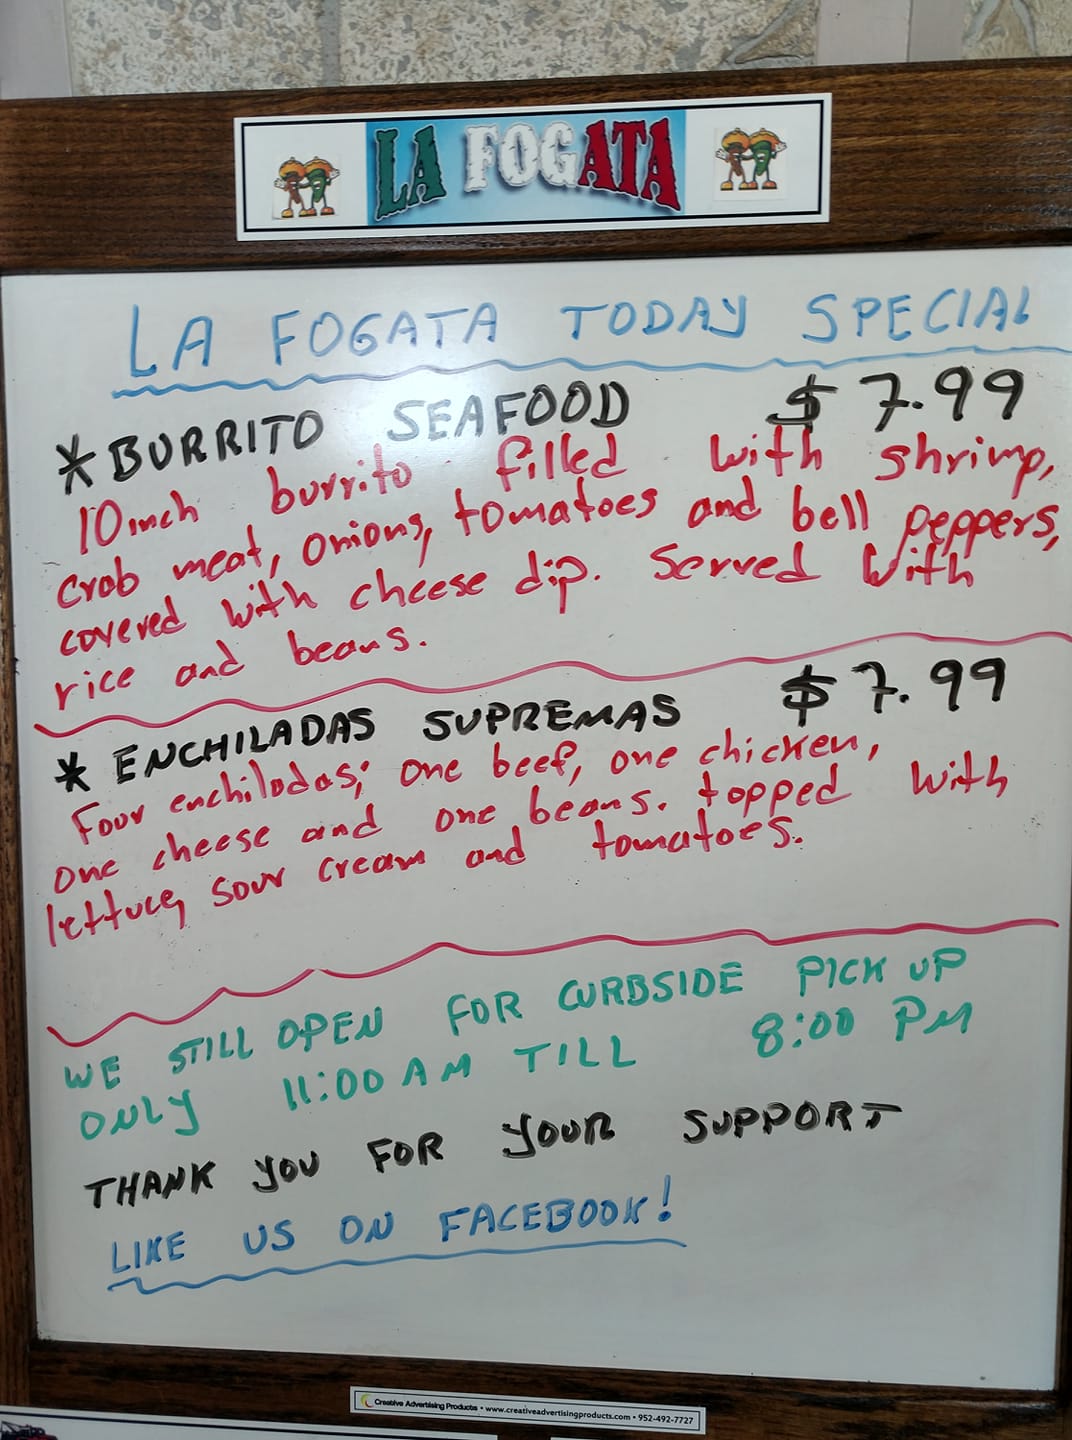 LA FOGATA
LA FOGATA TODAY SPECIAL
*BURRITO SEAFOOD $7.99
10inch burrito filled with shrimp,
crab meat, onions, tomatoes and bell peppers,
covered with cheese dip. Served With
rice and beans.
* ENCHILADAS SUPREMAS $7.99
Four enchiladas; one beef, one chicken,
one cheese and one beans. topped with
lettuce, sour cream and tomatoes.
WE STILL OPEN FOR CURBSIDE PICK UP
ONLY 11:00 AM TILL 8:00 PM
THANK YOU FOR YOUR SUPPORT
LIKE US ON FACEBOOK!
Creative Advertising Products • www.creativeadvertisingproducts.com • 952-492-7727